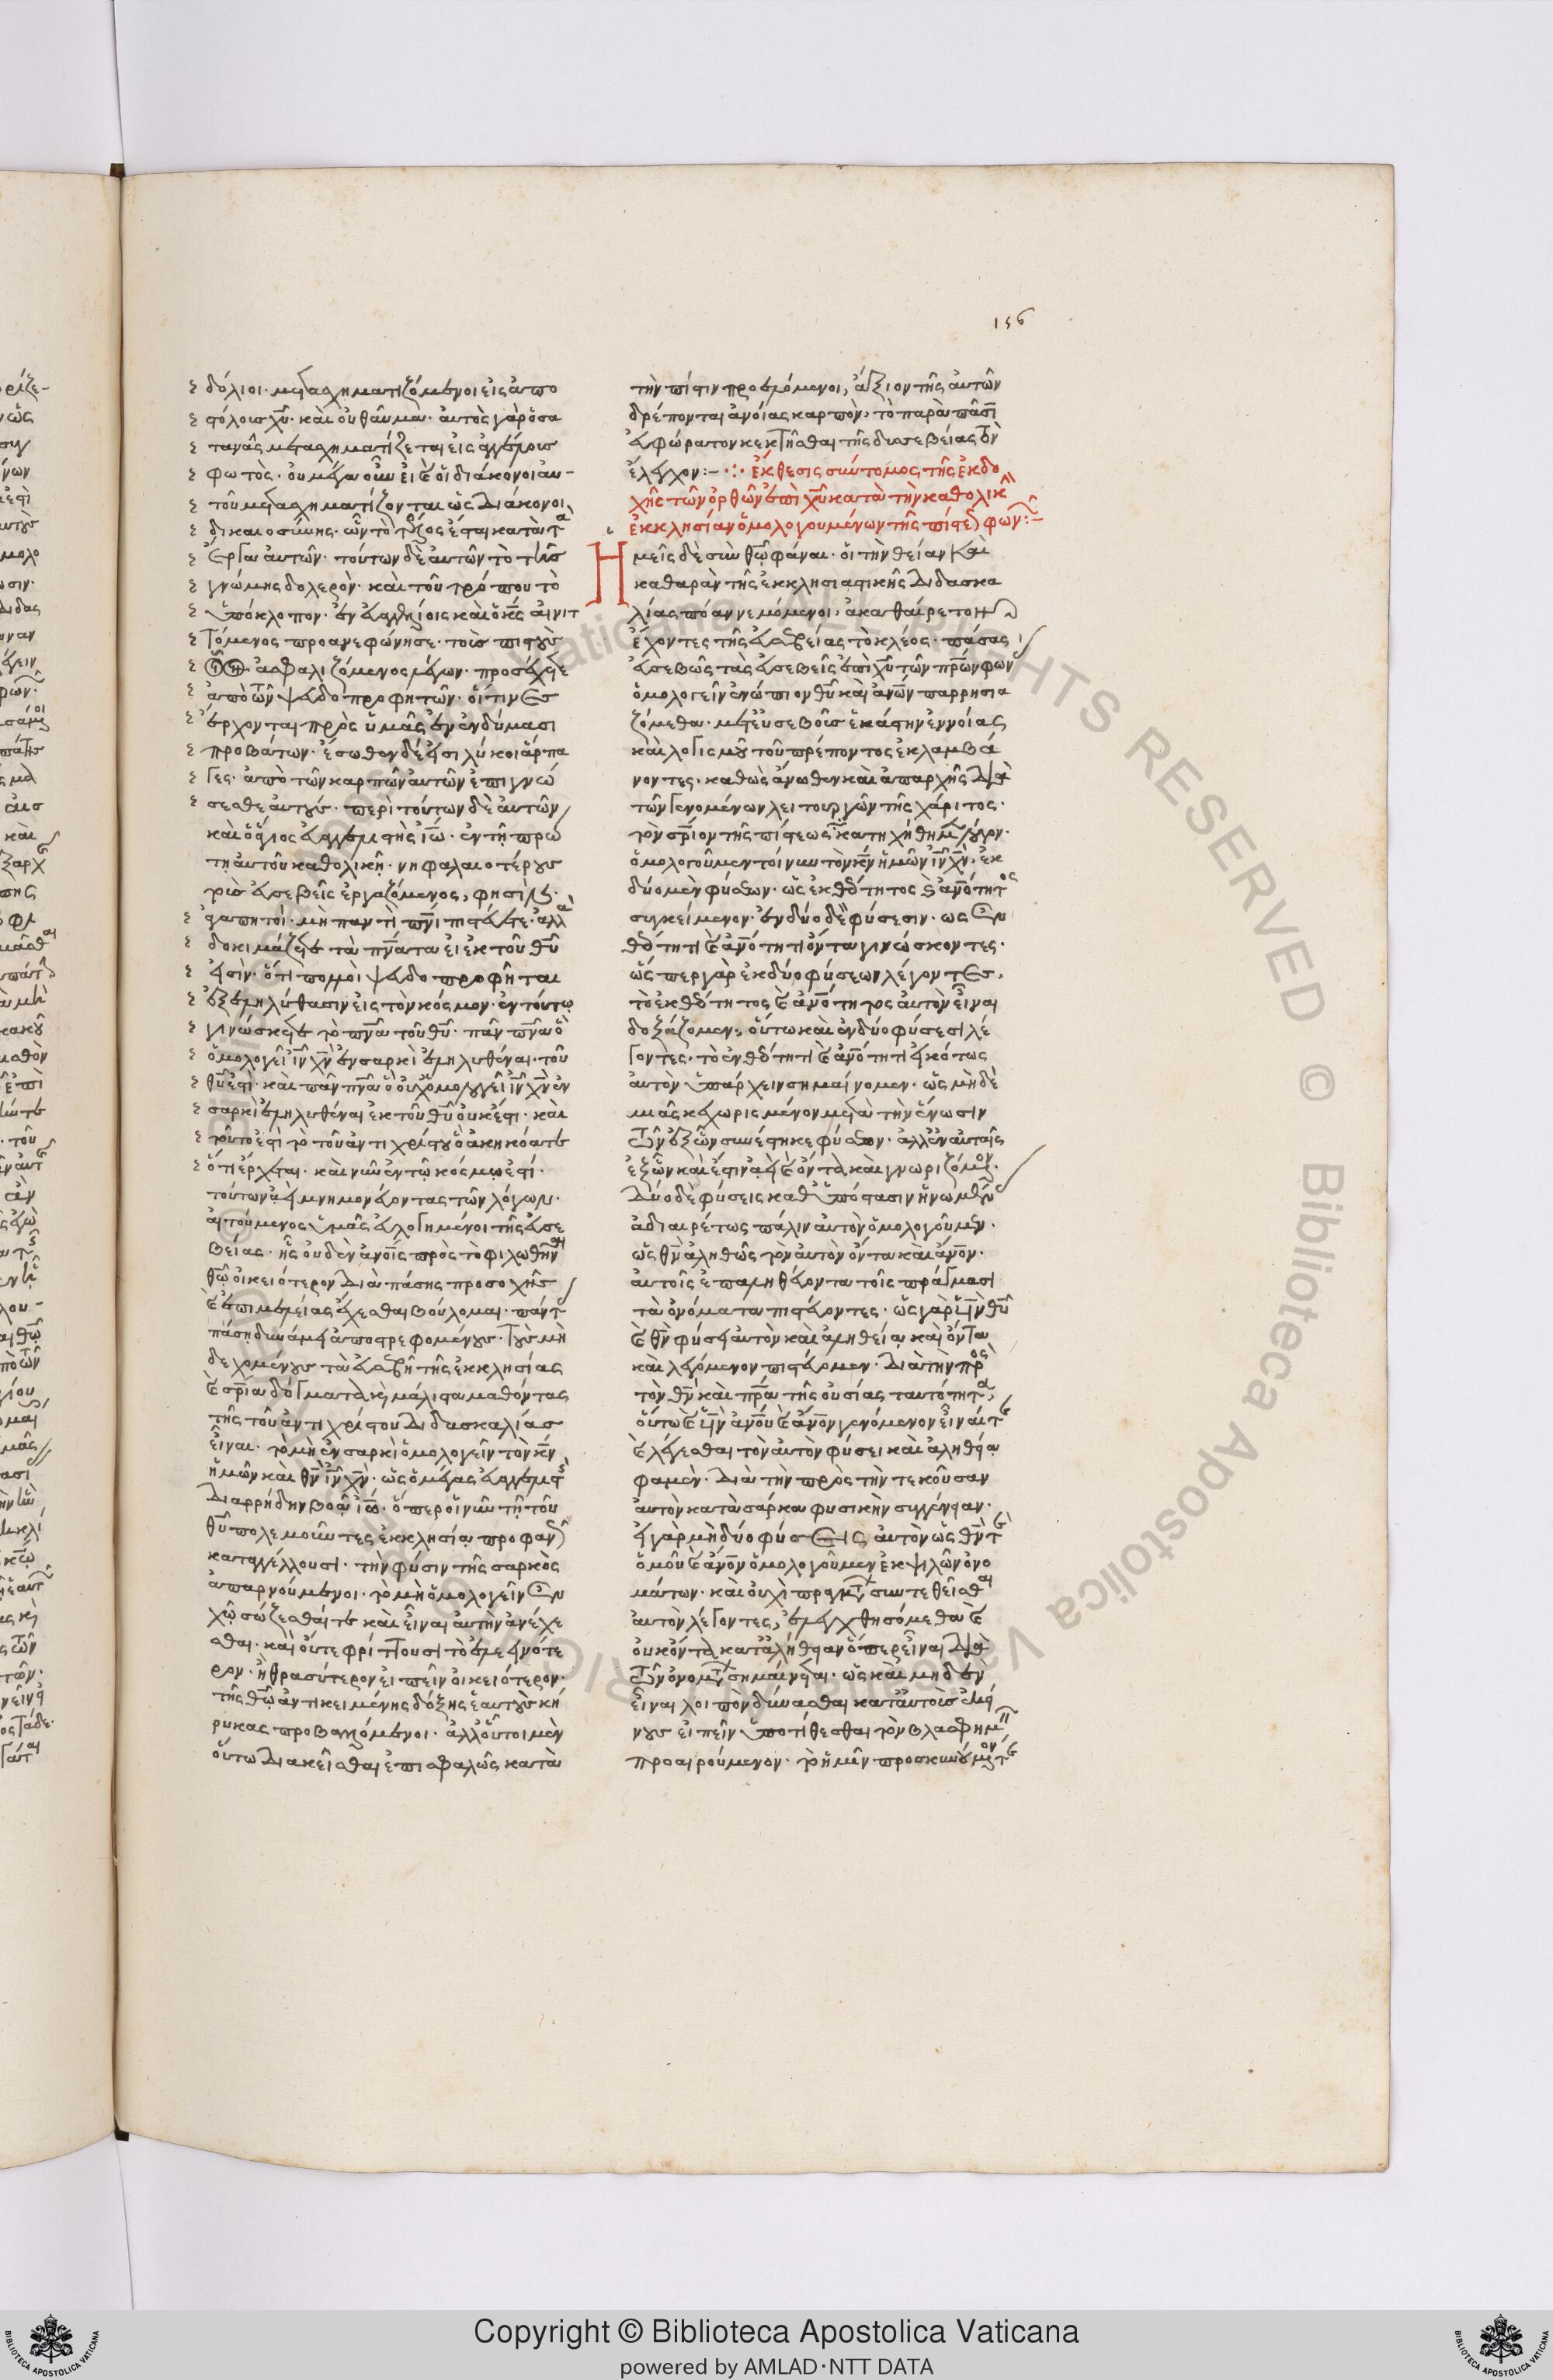 156
δόλιοι· μετασχηματιζόμενοι εἰς ἀπο
στόλους χῦ· καὶ οὐ θαῦμα· αὐτὸς γὰρ ὁ σα
τανᾶς μετασχηματίζεται εἰς ἄγγελους
φωτός· οὐ μέγα οὖν εἰ καὶ οἱ διάκονοι αὐ-
τοῦ μετασχηματίζονται ὡς διάκονοι
δικαιοσύνης· ὧν τὸ τέλος ἔσται κατὰ τὰ
ἔργα αὐτῶν· τούτων δὲ αὐτῶν τὸ τῆς
γνώμης δολερὸν· καὶ τοῦ τρόπου τὸ
ὑπόκλοπον· ἐν εὐαγγελίοις καὶ ὁ κς αἰνιτ
τόμενος προανεφώνησε· τοὺς πιστοὺς
ἀσφαλιζόμενος λέγων· προσέχετε
ἀπὸ τῶν ψευδοπροφητῶν· οἵτινες
ἔρχονται πρὸς ὑμᾶς ἐν ἐνδύμασι
προβάτων· ἔσωθεν δέ εἰσι λύκοι ἅρπα
γες· ἀπὸ τῶν καρπῶν αὐτῶν ἐπιγνώ
σεσθε αὐτούς· περὶ τούτων δὲ αὐτῶν
καὶ ὁ ἅγιος εὐαγγελιστὴς ἰω· ἐν τῇ πρώ
τῃ αὐτοῦ καθολικῇ· νηφαλαιοτέρους
τοὺς εὐσεβεῖς ἐργαζόμενος, φησὶν·
ἀγαπητοὶ· μὴ παντὶ πνι πιστεύετε· ἀλλὰ
δοκιμάζετε τὰ πνατα εἰ ἐκ τοῦ θυ
εἰσὶν· ὅτι πολλοὶ ψευδοπροφῆται
ἐξεληλύθασιν εἰς τὸν κόσμον· ἐν τούτῳ
γινώσκετε τὸ πνα τοῦ θυ· πᾶν πνα ὃ
ὁμολογεῖ ιν χν ἐν σαρκὶ ἐληλυθέναι· τοῦ
θυ ἐστὶ· καὶ πᾶν πνα ὃ οὐχ ὁμολογεῖ ιν χν ἐν
σαρκὶ ἐληλυθέναι ἐκ τοῦ θυ οὐκ ἔστι· καὶ
τοῦτο ἐστὶ τὸ τοῦ ἀντιχρίστου ὃ ἀκηκόατε
ὅτι ἔρχεται· καὶ νῦν ἐν τῷ κόσμῳ ἐστί·
τούτων ἀεὶ μνημονεύοντας τῶν λόγων·
αἰτούμενος ὑμᾶς
βείας· ἧς οὐδὲν ἀνοις πρὸς τὸ φιλωθῆναι
θῶ οἰκειότερον διὰ πάσης προσοχῆς
καὶ ἐπιμελείας ἔχεσθαι βούλομαι· πάντ
πάσῃ δυνάμει ἀποστρεφομένους· τοὺς μὴ
δεχομένους τὰ εὐαγῆ τῆς ἐκκλησίας
καὶ σρια δόγματα, καὶ μάλιστα μαθόντας
τῆς τοῦ ἀντιχρίστου διδασκαλίας
εἶναι· τὸ μὴ ἐν σαρκὶ ὁμολογεῖν τὸν κν
ἡμῶν καὶ θν ιν χν· ὡς ὁ μέγας εὐαγγελιστὴς
διαρρήδην βοᾷ ιω· ὅπερ οἱ νῦν τῇ τοῦ
θυ πολεμοῦντες ἐκκλησίᾳ προφανῶς
καταγγέλλουσι· τὴν φύσιν τῆς σαρκὸς
ἀπαρνούμενοι· τὸ μὴ ὁμολογεῖν ἐν
χῷ σώζεσθαί τε καὶ εἶναι αὐτὴν ἀνέχε
σθαι· καὶ οὔτε φρίττουσι τὸ ἐλεεινότε
ρον· ἢ θρασύτερον εἰπεῖν οἰκειότερον·
τῆς θω ἀντικειμένης δόξης ἑαυτοὺς κή
ρυκας προβαλλόμενοι· ἀλλ οὗτοι μὲν
οὕτω διακεῖσθαι ἐπισφαλῶς κατὰ
τὴν πίστιν προελόμενοι, ἄξιον τῆς αὐτῶν
δρέπονται ἀνοίας καρπὸν, τὸ παρὰ πᾶσι
εὐφώρατον κεκτῆσθαι τῆς δυσσεβείας τὸν
ἔλεγχον:- ·:· ἔκθεσις σύντομος τῆς ἐκδο
χῆς τῶν ὀρθῶν ἐπὶ χυ κατὰ τὴν καθολικὴν
ἐκκλησίαν ὁμολογουμένων τῆς πίστεως φωνῶν:-
Ημεῖς δὲ σὺν θω φάναι· οἱ τὴν θείαν καὶ
καθαρὰν τῆς ἐκκλησιαστικῆς διδασκα
λίας πόαν νεμόμενοι, ἀκαθαίρετον
ἔχοντες τῆς εὐσεβείας τὸ κλέος· πάσας
εὐσεβῶς τὰς εὐσεβεῖς ἐπὶ χυ τῶν πρων φωνὰς
ὁμολογεῖν ἐνώπιον θυ καὶ ἀνων παρρησια
ζόμεθα· μετ εὐσεβοῦς ἑκάστην ἐννοίας
καὶ λογισμοῦ τοῦ πρέποντος ἐκλαμβά
νοντες· καθὼς ἄνωθεν καὶ ἀπαρχῆς διὰ
τῶν γενομένων λειτουργῶν τῆς χάριτος·
τὸν σριον τῆς πίστεως κατηχήθημεν λόγον·
ὁμολογοῦμεν τοίνυν τὸν κν ἡμῶν ιν χν, ἐκ
δύο μὲν φύσεων· ὡς ἐκ θεότητος καὶ ἀνότητος
συγκείμενον· ἐν δύο δὲ φύσεσιν· ὡς ἐν
θεότητι καὶ ἀνότητι ὄντα γινώσκοντες·
ὥσπερ γὰρ ἐκ δύο φύσεων λέγοντες,
τὸ ἐκ θεότητος καὶ ἀνότητος αὐτὸν εἶναι
δοξάζομεν, οὕτω καὶ ἐν δύο φύσεσι λέ
γοντες· τὸ ἐν θεότητι καὶ ἀνότητι εἰκότως
αὐτὸν ὑπάρχειν σημαίνομεν· ὡς μὴ δὲ
μιᾶς κεχωρισμένον μετὰ τὴν ἕνωσιν
τῶν ἐξ ὧν συνέστηκε φύσεων· ἀλλ ἐν αὐταῖς
ἐξ ὧν καὶ ἔστιν ἀεὶ καὶ ὄντα, καὶ γνωριζόμενον·
δύο δὲ φύσεις καθ ὑπόστασιν ἡνωμένας
ἀδιαιρέτως πάλιν αὐτὸν ὁμολογοῦμεν·
ὡς θν ἀληθῶς τὸν αὐτὸν ὄντα καὶ ἄνον·
αὐτοῖς ἐπαληθεύοντα τοῖς πράγμασι
τὰ ὀνόματα πιστεύοντες· ὡς γὰρ υν θυ
καὶ θν φύσει αὐτὸν καὶ ἀληθείᾳ καὶ ὄντα
καὶ λεγόμενον πιστεύομεν· διὰ τὴν πρὸς
τὸν θν καὶ πρα τῆς οὐσίας ταυτότητα,
οὕτω καὶ υν ἀνου καὶ ἄνον γενόμενον εἶναί τε
καὶ λέγεσθαι τὸν αὐτὸν φύσει καὶ ἀληθείᾳ
φαμὲν· διὰ τὴν πρὸς τὴν τεκοῦσαν
αὐτὸν κατὰ σάρκα φυσικὴν συγγένειαν·
εἰ γὰρ μὴ δύο φύσεις αὐτὸν ὡς θν τε
ὁμοῦ καὶ ἄνον ὁμολογοῦμεν ἐκ ψιλῶν ὀνο
μάτων· καὶ οὐχὶ πραγμάτων συντεθεῖσθαι
αὐτὸν λέγοντες, ἐλεγχθησόμεθα καὶ
οὐκ ὄντα κατ ἀλήθειαν ὅπερ εἶναι διὰ
τῶν ὀνομάτων σημαίνεται· ὡς καὶ μηδὲν
εἶναι λοιπὸν δύνασθαι κατ αὐτοὺς ἐκεί
νους εἰπεῖν ὑποτίθεσθαι τὸν βλασφημεῖν
προαιρούμενον· τὸ ἡμῖν προσκυνούμενόν τε